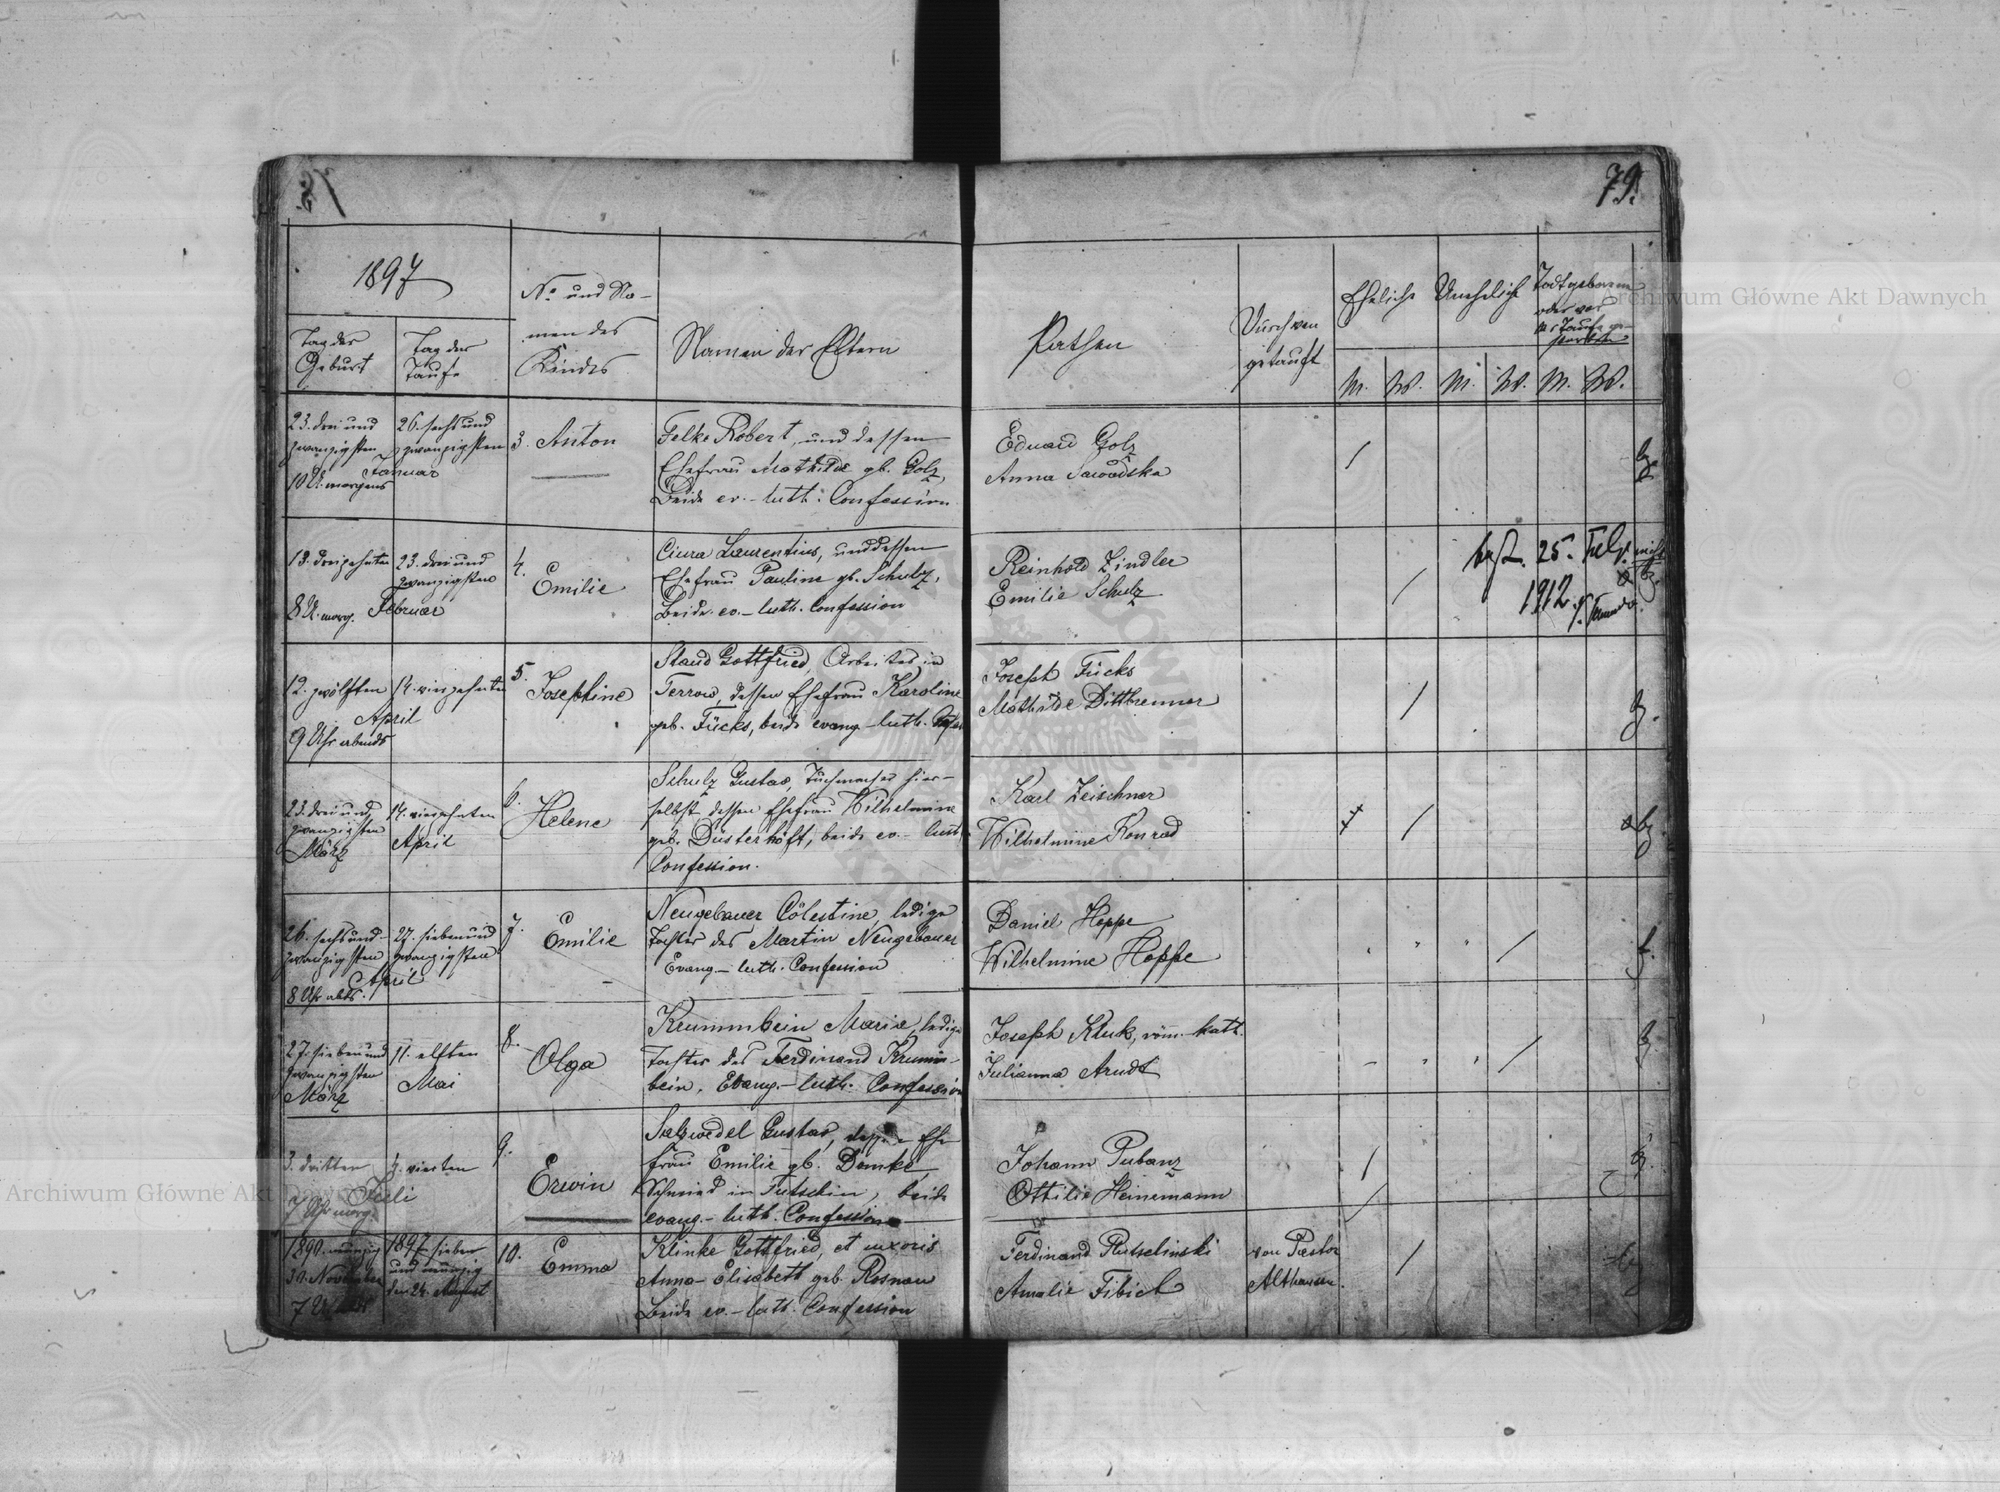 79.
1897
Tag der
Geburt
Tag der
Taufe
No und Na-
men des
Kindes
Namen der Eltern
Pathen
Durch wen
getauft
Eheliche
Uneheliche
Todtgeborene
oder vor
der Taufe ge-
storben
M. W. M. W. M. W.
23. drei und
zwanzigsten
10 U. morgens
26. sechs und
zwanzigsten
Januar
3. Anton
Felke Robert, und dessen
Ehefrau Mathilde gb. Golz,
Beide ev.-luth. Confession
Eduard Golz
Anna Sawadska
13. dreizehnten
8 U. morg.
23. drei und
zwanzigsten
Februar
4.
Emilie
Ciura Laurentius, und dessen
Ehefrau Pauline gb. Schulz,
Beide ev.-luth. Confession
Reinhold Zindler
Emilie Schulz
25.
1912.
12. zwölften
9 Uhr abends
14. vierzehnten
April
5.
Josephine
Staud Gottfried, Arbeiter in
Terrow, dessen Ehefrau Karoline
geb. Fücks, beide evang-luth.
Joseph Fücks
Mathilde Dittbrenner
23. drei und
zwanzigsten
März
14. vierzehnten
April
6.
Helene
Schulz Gustav, Tuchmacher hier-
selbst dessen Ehefrau Wilhelmine
geb. Düsterhöft, beide ev.-luth
Confession.
Karl Zeischner
Wilhelmine Konrad
26. sechs und
zwanzigsten
8 Uhr abds.
27. sieben und
zwanzigsten
April
7.
Emilie
Neugebauer Cölestine, ledige
Tochter des Martin Neugebauer
Evang-luth. Confession
Daniel Hoppe
Wilhelmine Hoppe
27. sieben und
zwanzigsten
März
11. elften
Mai
8.
Olga
Krummbein Marie, ledige
Tochter des Ferdinand Krumm-
bein, Evang.-luth. Confession
Joseph Kluk, röm-kath.
Julianna Arndt
3. dritten
7 Uhr morg.
4. vierten
Juli
9.
Erwin
Salzwedel Gustav, dessen Ehe
frau Emilie gb. Domke
Schmied in Tutschin, beide
evang.-luth. Confession
Johann Pubanz
Ottilie Heinemann
1890. neunzig
30. November
1897 sieben
und neunzig
den 24. August
10.
Emma
Klinke Gottfried, et uxoris
Anna-Elisabeth geb. Rosnau
Beide ev.-luth. Confession
Ferdinand Rutschinski
Amalie Fibich
von Pastor
Althausen.
Archiwum Główne Akt Dawnych
Archiwum Główne Akt Dawnych